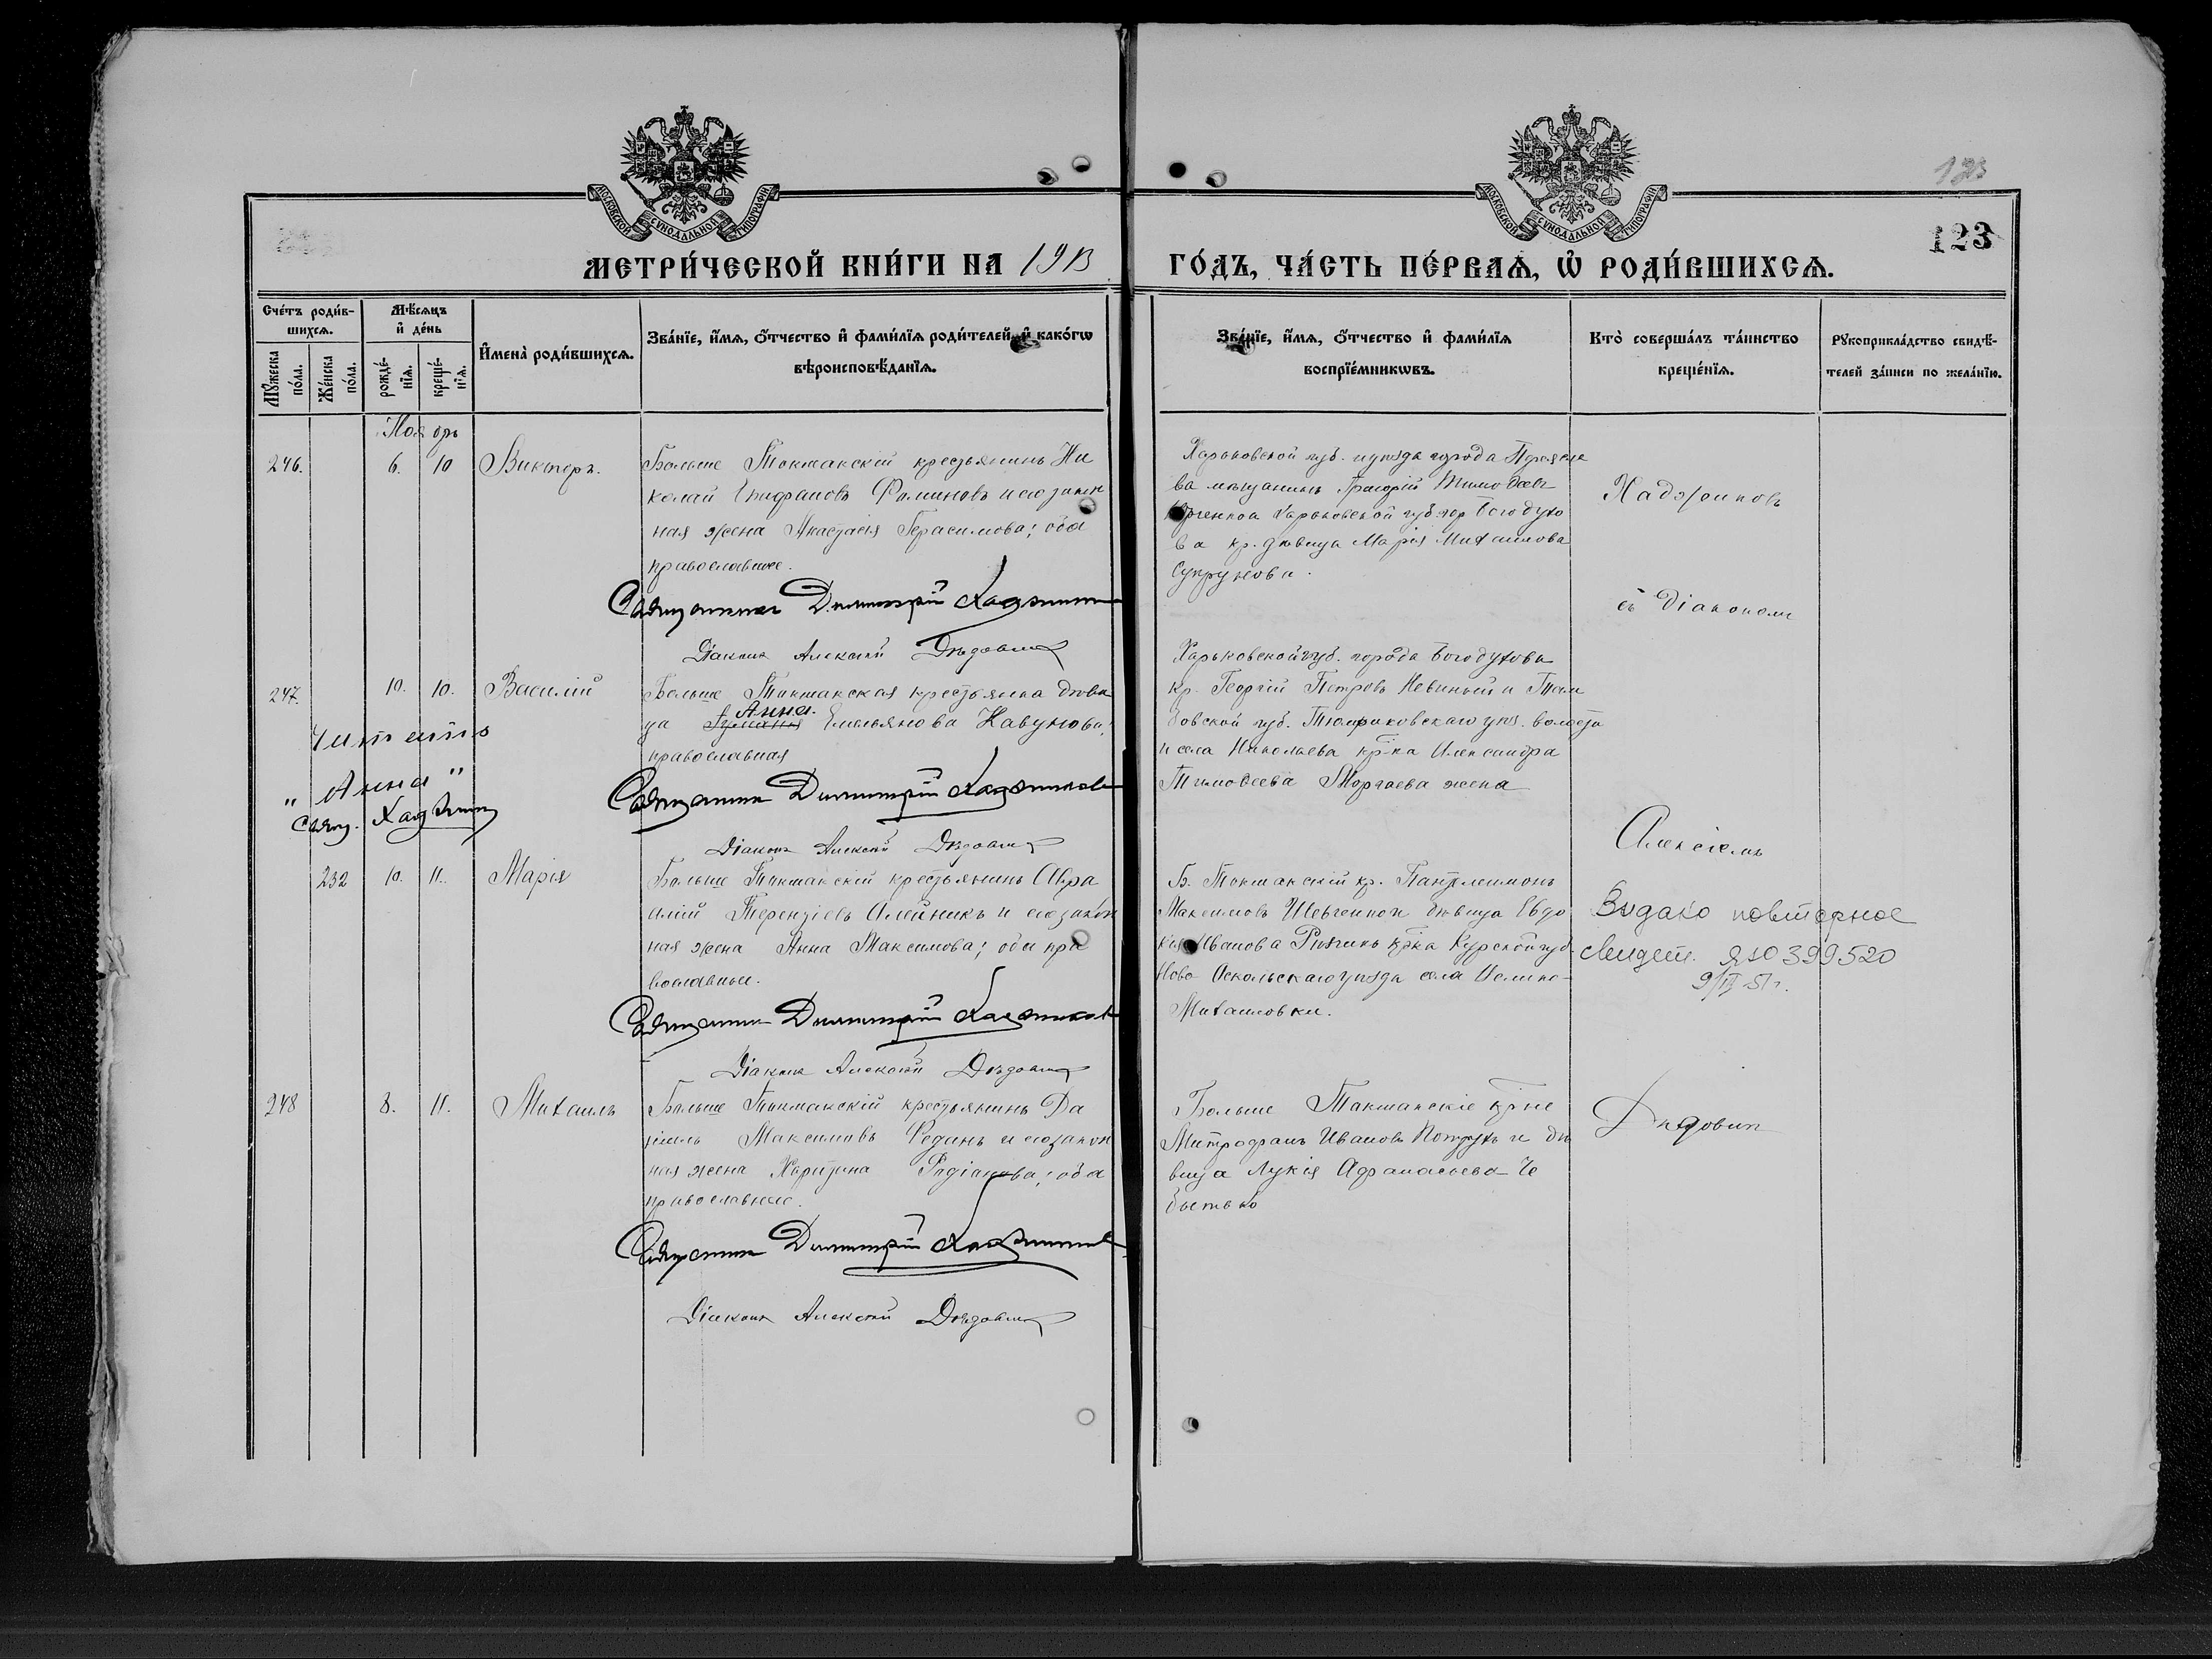 123
123
МОСКОВСКОЙ СУНОДАЛЬНОЙ ТИПОГРАФІИ
МОСКОВСКОЙ СУНОДАЛЬНОЙ ТИПОГРАФІИ
МЕТРИ́ЧЕСКОЙ КНИ́ГИ НА 1913 ГО́ДЪ, ЧА́СТЬ ПЕ́РВАѦ, Ѡ҆ РОДИ́ВШИХСѦ.
Счетъ родив-
шихсѧ.
Мꙋжеска пола.
Женска пола.
Мѣсѧцъ
и день
рожде-
нїѧ.
креще-
нїѧ.
Имена родившихсѧ.
Званїе, имѧ, ѻтчество и фамилїѧ родителей, и какогѡ
вѣроисповѣданїѧ.
Званїе, имѧ, ѻтчество и фамилїѧ
воспрїемникѡвъ.
Кто совершалъ таинство
крещенїѧ.
Рꙋкоприкладство свидѣ-
телей записи по желанїю.
Ноябрь
246. 6. 10 Викторъ.
Больше Токмакскій крестьянинъ Ни
колай Епифановъ Фоминовъ и законн
ная жена Анастасія Герасимова; оба
православные.
Священникъ Димитрій Хаджиновъ
Діаконъ Алексѣй Дѣдовичъ
Харьковской губ. и уѣзда города
ва мѣщанинъ Григорій Тимоѳеевъ
Харьковской губ. гор. Богодухо
ва кр. дѣвица Марія Михаилова
Супрунова.
Хаджиновъ
съ Діакономъ
247. 10. 10. Василій
Больше Токмакская крестьянка дѣви
ца Анна Емельянова Кавунова;
православная
Читать
"Анна"
Свящ. Хаджиновъ
Священникъ Димитрій Хаджиновъ
Діаконъ Алексѣй Дѣдовичъ
Харьковской губ. города Богодухова
кр. Георгій Петровъ Невиный и Там
бовской губ. уѣз. волости
и села Николаева кр-ка Александра
Тимоѳеева жена
Алексіемъ
232 10. 11. Марія
Больше Токмакскій крестьянинъ Авра
амій Терентіевъ Олейникъ и законн
ная жена Анна Максимова; оба пра
вославные.
Священникъ Димитрій Хаджиновъ
Діаконъ Алексѣй Дѣдовичъ
Б. Токмакскій кр. Пантелеимонъ
Максимовъ Шевченко и дѣвица Евдо
кія Иванова кр-ка Курской губ.
Ново Оскольскаго уѣзда села
Михаиловки.
Видано повторное
свидет. ЯЮ 399520
248 8. 11. Михаилъ
Больше Токмакскій крестьянинъ Да
ніилъ Максимовъ Рединъ и законн
ная жена Харитина Родіонова; оба
православные.
Священникъ Димитрій Хаджиновъ
Діаконъ Алексѣй Дѣдовичъ
Больше Токмакскіе кр-не
Митрофанъ Ивановъ и дѣ
вица Лукія Афанасьева
Дѣдовичъ